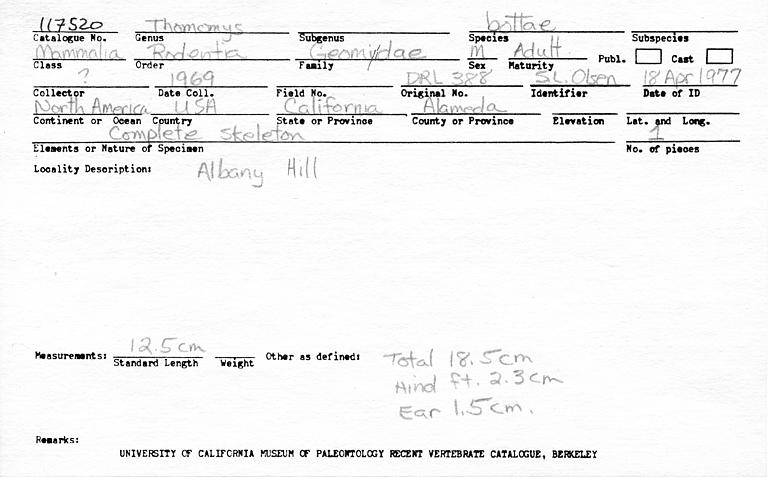 117520 Thomomys bottae
Catalogue No. Genus Subgenus Species Subspecies
Mammalia Rodentia Geomyidae M Adult Publ. Cast
Class Order Family Sex Maturity
? 1969 DRL 388 S.L. Olsen 18 Apr 1977
Collector Date Coll. Field No. Original No. Identifier Date of ID
North America USA California Alameda
Continent or Ocean Country State or Province County or Province Elevation Lat. and Long.
Complete Skeleton 1
Elements or Nature of Specimen No. of pieces
Locality Description: Albany Hill
Measurements: 12.5cm Other as defined: Total 18.5cm
Standard Length Weight
Hind ft. 2.3cm
Ear 1.5cm.
Remarks:
UNIVERSITY OF CALIFORNIA MUSEUM OF PALEONTOLOGY RECENT VERTEBRATE CATALOGUE, BERKELEY